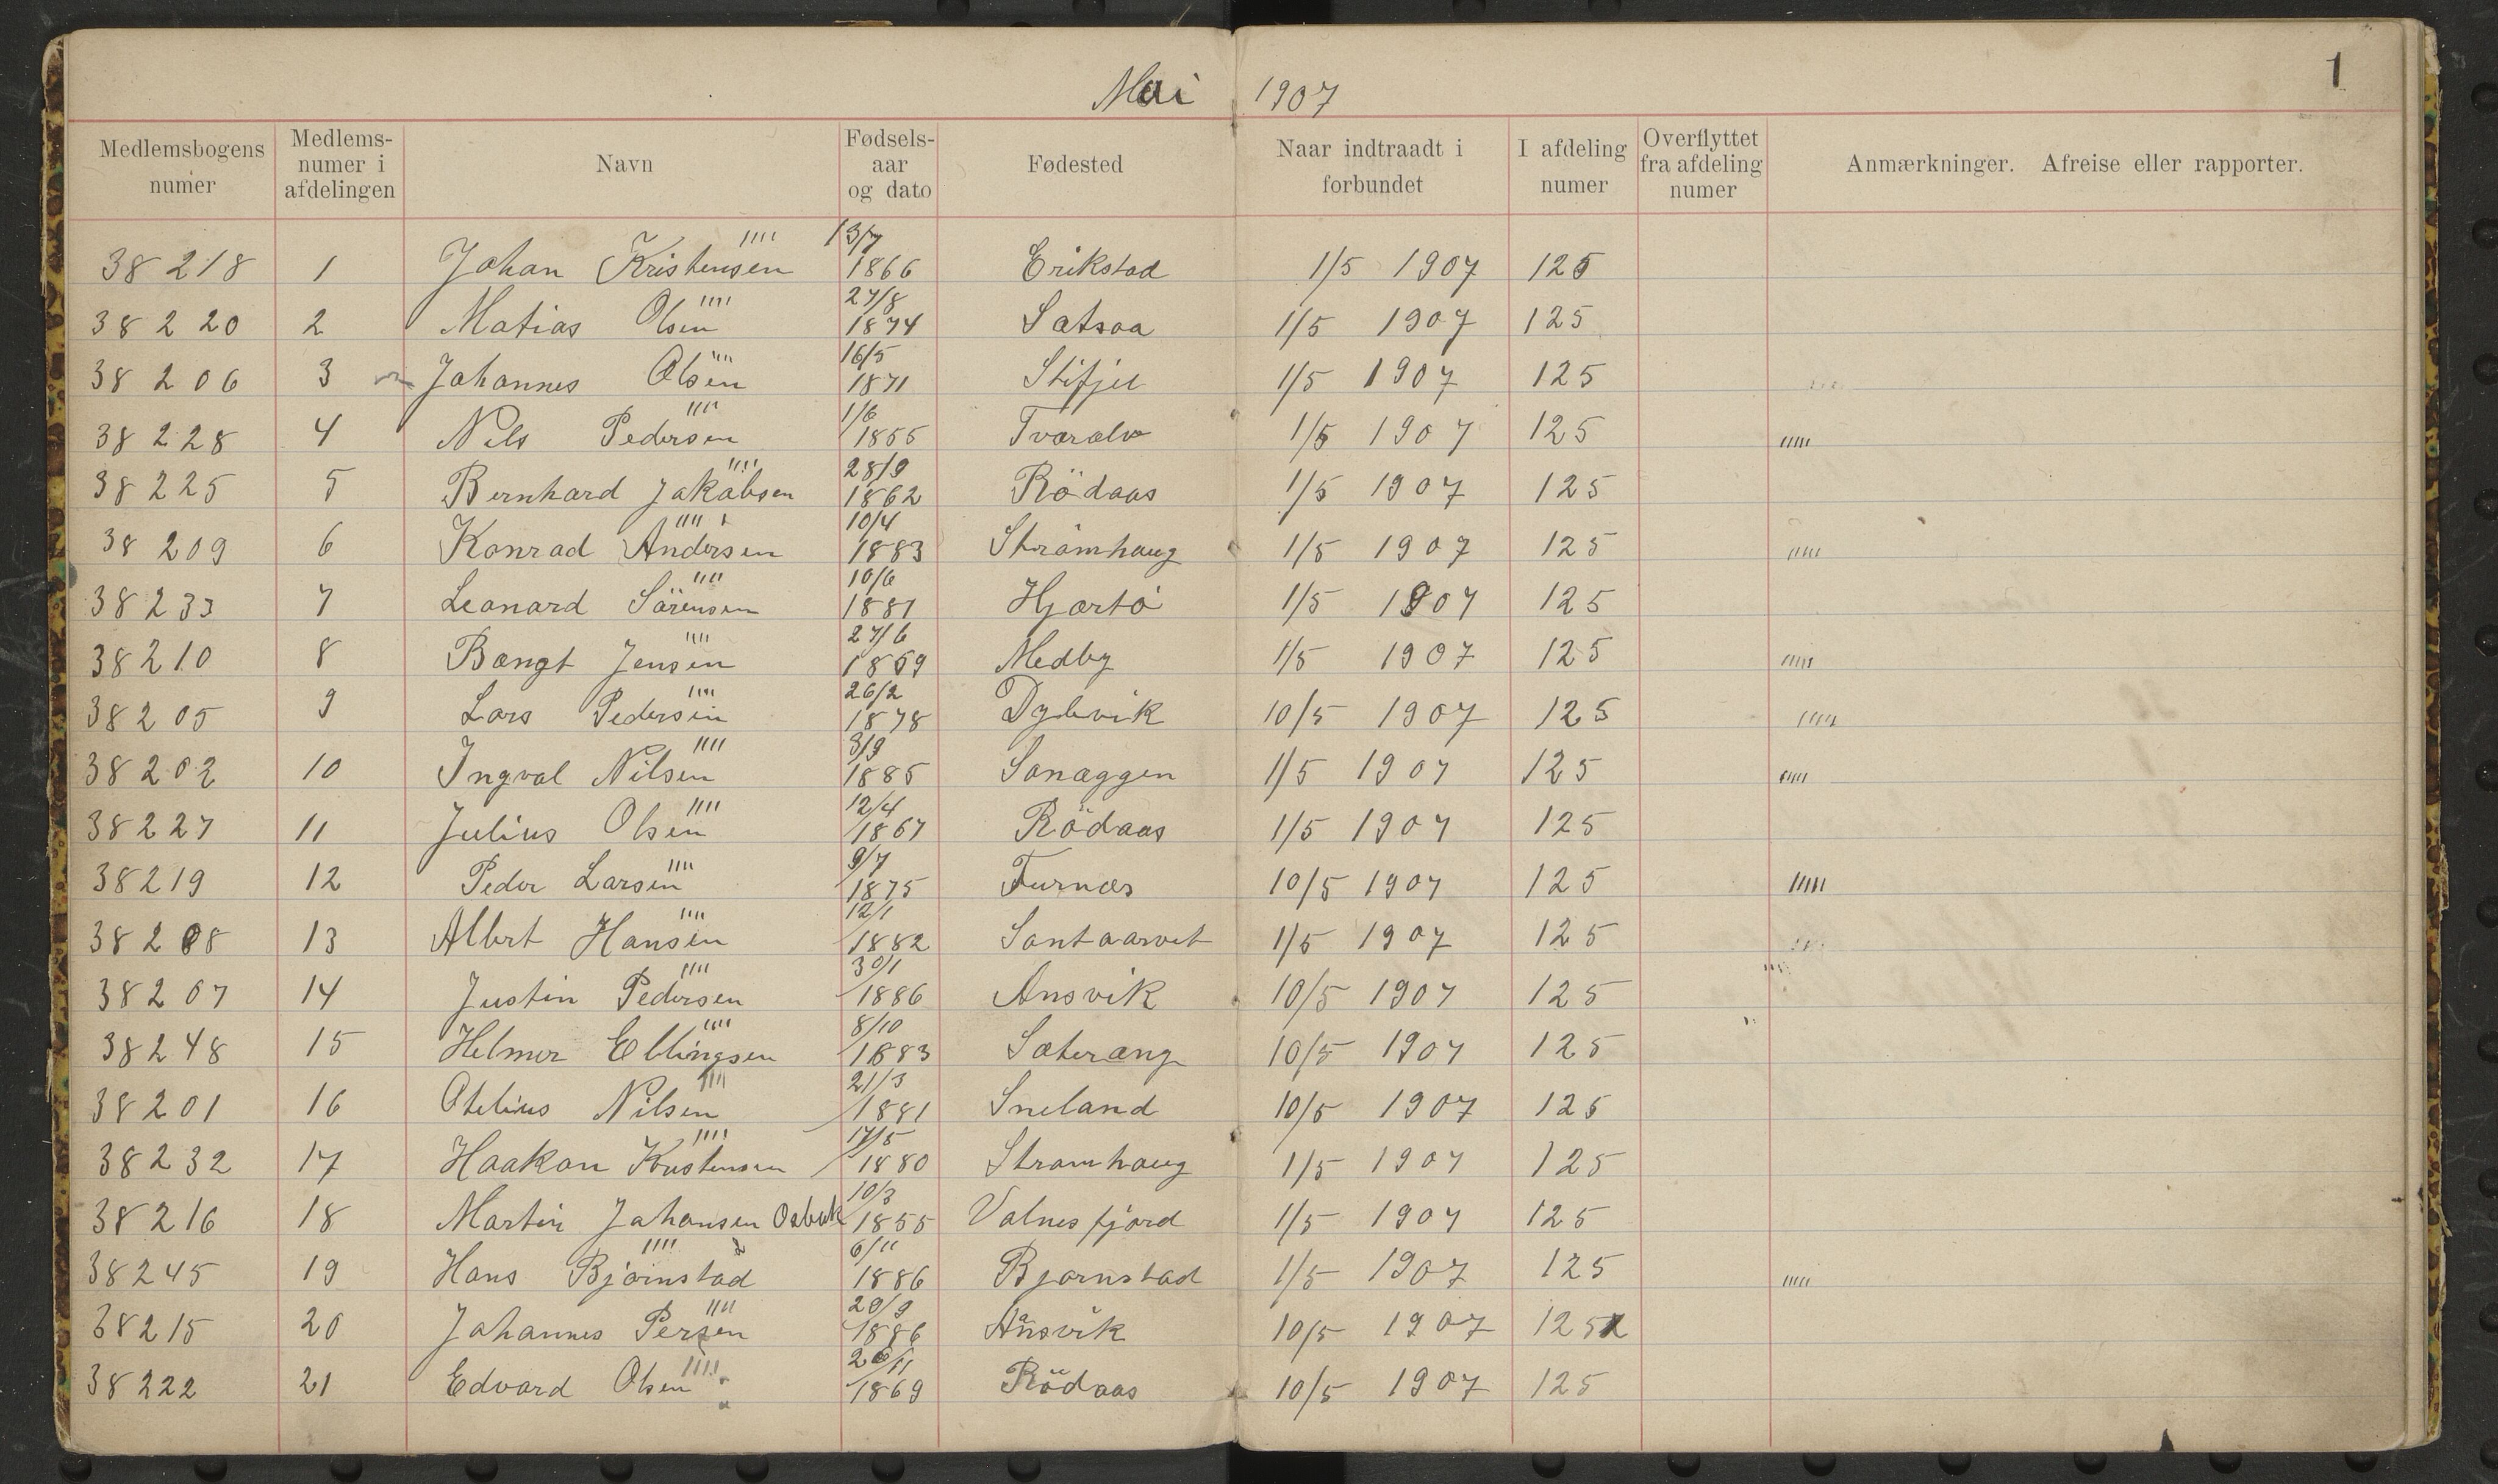 Mai 1907
1
Medlemsbogens numer | Medlems-numer i afdelingen | Navn | Fødsels-aar og dato | Fødested | Naar indtraadt i forbundet | I afdeling numer | Overflyttet fra afdeling numer | Anmærkninger. Afreise eller rapporter.
38218 1 Johan Kristensen 13/7 1866 Erikstad 1/5 1907 125
38220 2 Matias Olsen 27/8 1874 Satsaa 1/5 1907 125
38206 3 Johannes Olsen 16/5 1871 Stifjel 1/5 1907 125
38228 4 Nils Pedersen 1/6 1855 Tværalv 1/5 1907 125
38225 5 Bernhard Jakobsen 28/9 1862 Rödaas 1/5 1907 125
38209 6 Konrad Andersen 10/4 1883 Strömhaug 1/5 1907 125
38233 7 Leonard Sörensen 10/6 1881 Hjartö 1/5 1907 125
38210 8 Bængt Jensen 27/6 1869 Medby 1/5 1907 125
38205 9 Lars Pedersen 26/2 1878 Dybvik 10/5 1907 125
38202 10 Ingval Nilsen 3/9 1885 1/5 1907 125
38227 11 Julius Olsen 12/4 1867 Rödaas 1/5 1907 125
38219 12 Peder Larsen 9/7 1875 Furnæs 10/5 1907 125
38208 13 Albert Hansen 12/1 1882 1/5 1907 125
38207 14 Justin Pedersen 30/1 1886 Ansvik 10/5 1907 125
38248 15 Helmer Ellingsen 8/10 1883 Sæteræng 10/5 1907 125
38201 16 Otelius Nilsen 21/3 1881 Sneland 10/5 1907 125
38232 17 Haakon Kristensen 17/5 1880 Strömhaug 1/5 1907 125
38216 18 Martin Johansen Osbak 10/3 1855 Valnesfjord 1/5 1907 125
38245 19 Hans Björnstad 6/11 1886 Bjørnstad 1/5 1907 125
38215 20 Johannes Persen 29/9 1886 Ånsvik 10/5 1907 125
38222 21 Edvard Olsen 26/11 1869 Rödaas 10/5 1907 125